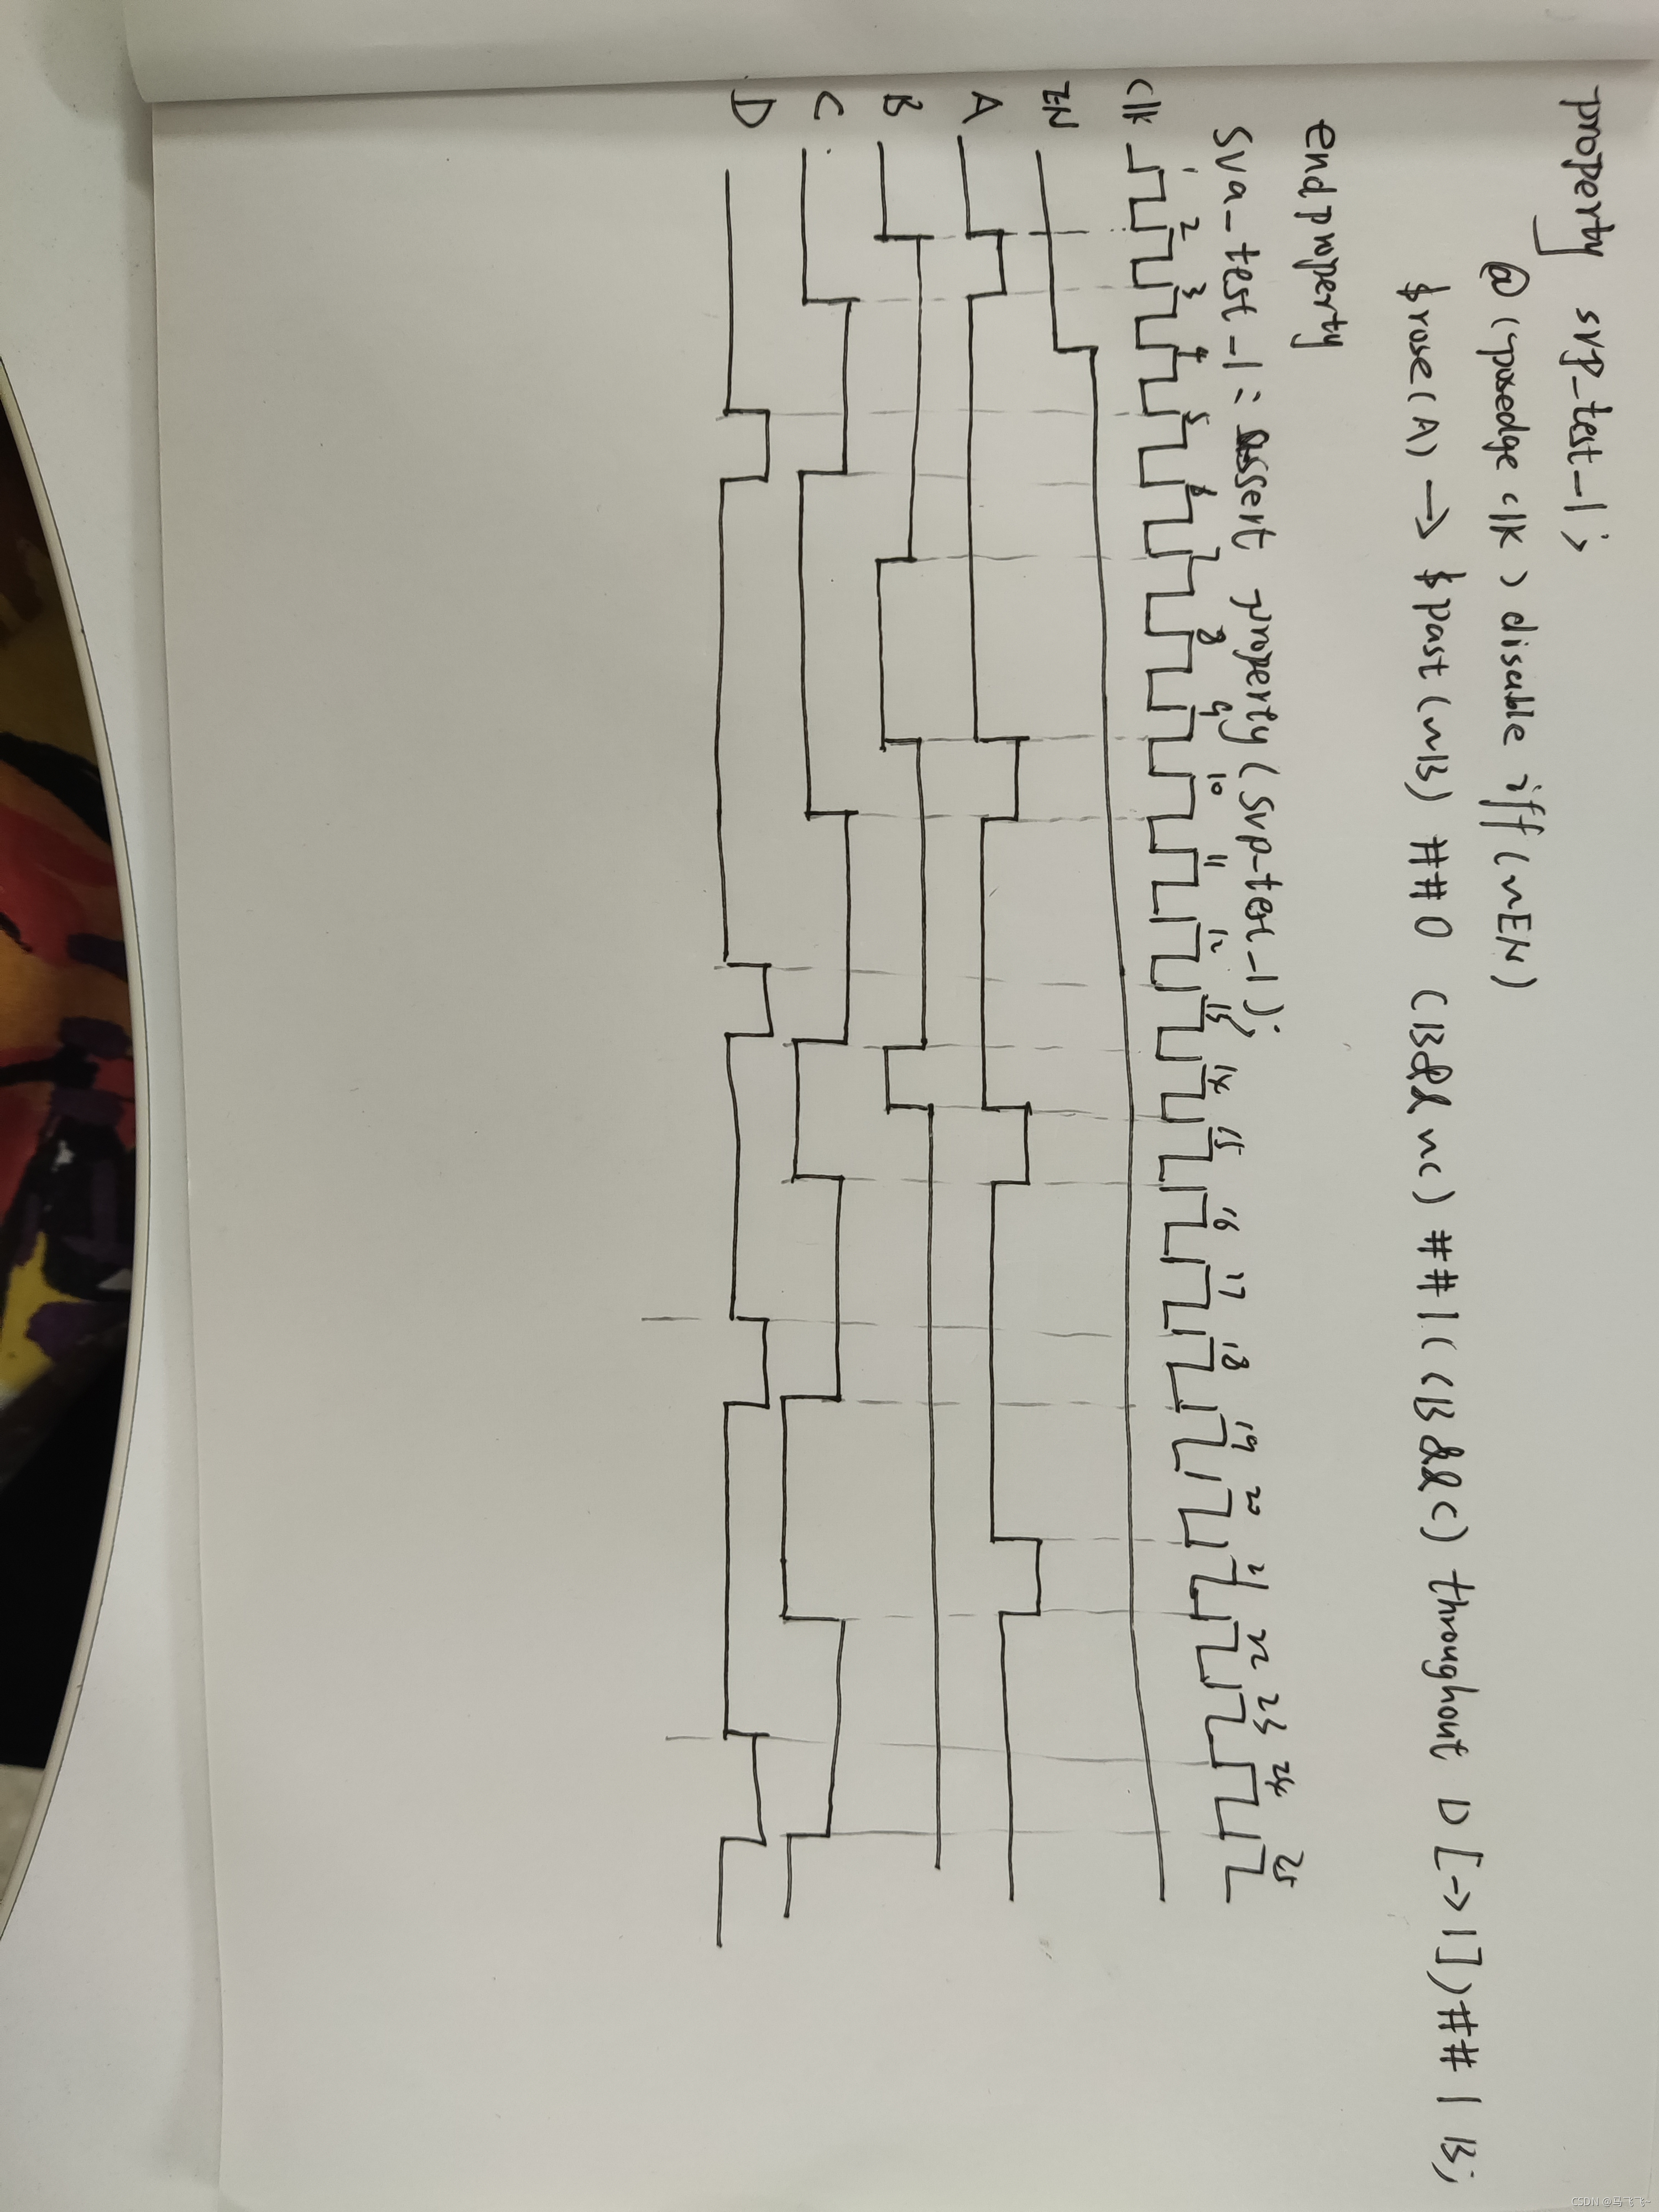 property svp_test_1;
@(posedge clk) disable iff(~EN)
$rose(A) -> $past(~B) ##0 (B&&~C) ##1((B&&C) throughout D[->1])##1 B;
endproperty
sva_test_1: assert property(svp_test_1);
1 2 3 4 5 6 7 8 9 10 11 12 13 14 15 16 17 18 19 20 21 22 23 24 25
clk
EN
A
B
C
D
CSDN @马飞飞~